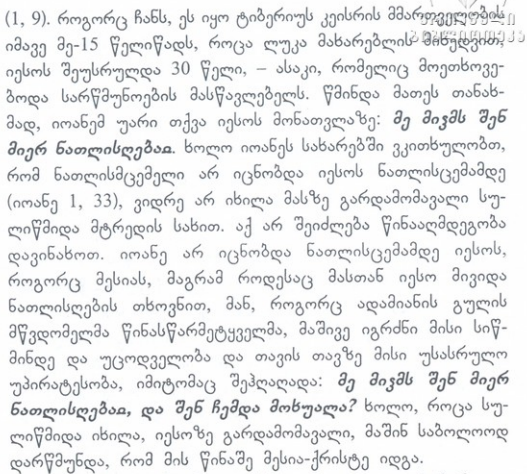 (1, 9). როგორც ჩანს, ეს იყო ტიბერიუს კეისრის მმართველობის
იმავე მე-15 წელიწადს, როცა ლუკა მახარებლის მიხედვით,
იესოს შეუსრულდა 30 წელი, – ასაკი, რომელიც მოეთხოვე-
ბოდა სარწმუნოების მასწავლებელს. წმინდა მათეს თანახ-
მად, იოანემ უარი თქვა იესოს მონათვლაზე: მე მიჯმს შენ
მიერ ნათლისღებაჲ. ხოლო იოანეს სახარებში ვკითხულობთ,
რომ ნათლისმცემელი არ იცნობდა იესოს ნათლისცემამდე
(იოანე 1, 33), ვიდრე არ იხილა მასზე გარდამომავალი სუ-
ლიწმიდა მტრედის სახით. აქ არ შეიძლება წინააღმდეგობა
დავინახოთ. იოანე არ იცნობდა ნათლისცემამდე იესოს,
როგორც მესიას, მაგრამ როდესაც მასთან იესო მივიდა
ნათლისღების თხოვნით, მან, როგორც ადამიანის გულის
მწვდომელმა წინასწარმეტყველმა, მაშივე იგრძნი მისი სიწ-
მინდე და უცოდველობა და თავის თავზე მისი უსასრულო
უპირატესობა, იმიტომაც შეჰღაღადა: მე მიჯმს შენ მიერ
ნათლისღებაჲ, და შენ ჩემდა მოხუალა? ხოლო, როცა სუ-
ლიწმიდა იხილა, იესოზე გარდამომავალი, მაშინ საბოლოოდ
დარწმუნდა, რომ მის წინაშე მესია-ქრისტე იდგა.